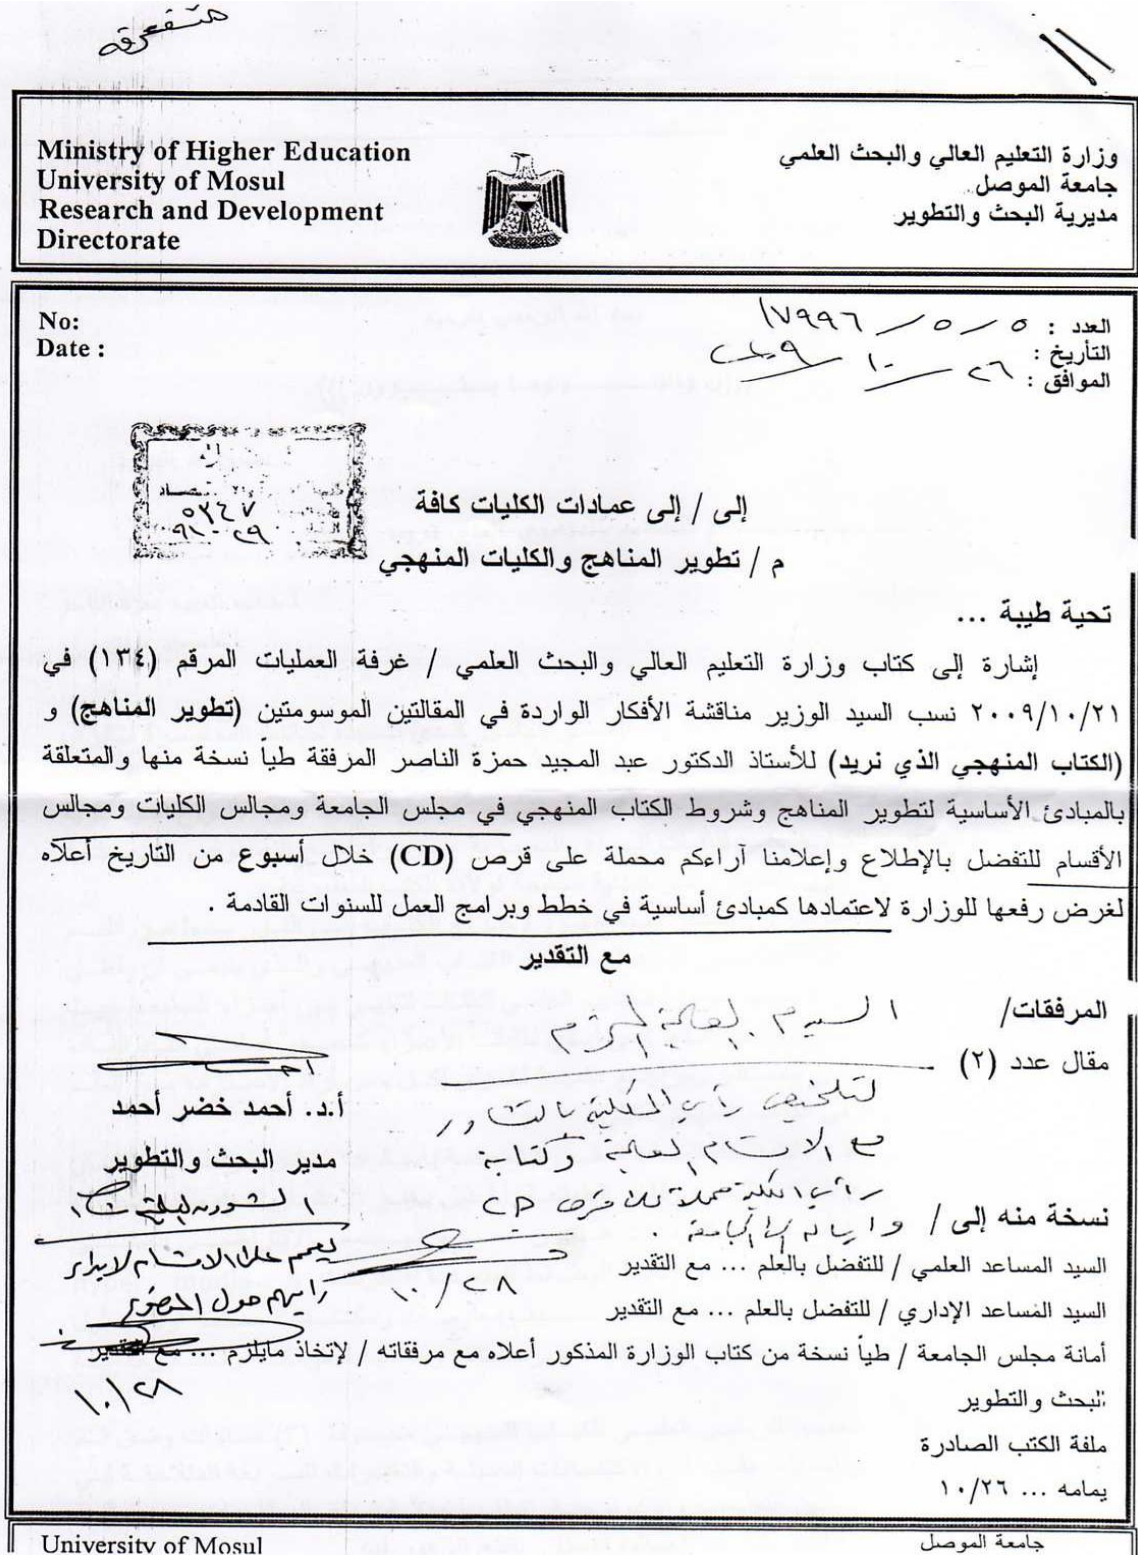 متفرقة
Ministry of Higher Education
University of Mosul
Research and Development
Directorate
وزارة التعليم العالي والبحث العلمي
جامعة الموصل
مديرية البحث والتطوير
No:
Date :
العدد : ٥ / ٥ / ١٧٩٩٦
التأريخ :
الموافق : ٢٦ / ١٠ / ٢٠٠٩
٥٢٤٧
إلى / إلى عمادات الكليات كافة
م / تطوير المناهج والكليات المنهجي
تحية طيبة ...
إشارة إلى كتاب وزارة التعليم العالي والبحث العلمي / غرفة العمليات المرقم (١٣٤) في
٢٠٠٩/١٠/٢١ نسب السيد الوزير مناقشة الأفكار الواردة في المقالتين الموسومتين (تطوير المناهج) و
(الكتاب المنهجي الذي نريد) للأستاذ الدكتور عبد المجيد حمزة الناصر المرفقة طياً نسخة منها والمتعلقة
بالمبادئ الأساسية لتطوير المناهج وشروط الكتاب المنهجي في مجلس الجامعة ومجالس الكليات ومجالس
الأقسام للتفضل بالإطلاع وإعلامنا آراءكم محملة على قرص (CD) خلال أسبوع من التاريخ أعلاه
لغرض رفعها للوزارة لاعتمادها كمبادئ أساسية في خطط وبرامج العمل للسنوات القادمة
مع التقدير
المرفقات/
مقال عدد (٢)
أ.د. أحمد خضر أحمد
مدير البحث والتطوير
١٠/٢٨
نسخة منه إلى /
السيد المساعد العلمي / للتفضل بالعلم ... مع التقدير
السيد المساعد الإداري / للتفضل بالعلم ... مع التقدير
أمانة مجلس الجامعة / طياً نسخة من كتاب الوزارة المذكور أعلاه مع مرفقاته / لاتخاذ مايلزم ... مع التقدير
البحث والتطوير
ملفة الكتب الصادرة
يمامه ... ١٠/٢٦
١٠/٢٨
University of Mosul
جامعة الموصل